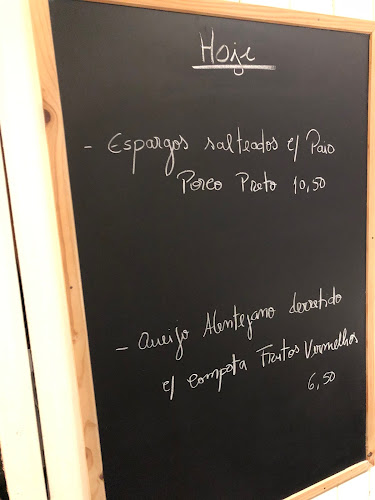 Hoje
- Espargos salteados c/ Paio
Porco Preto 10,50
- Queijo Alentejano derretido
c/ compota Frutos Vermelhos
6,50